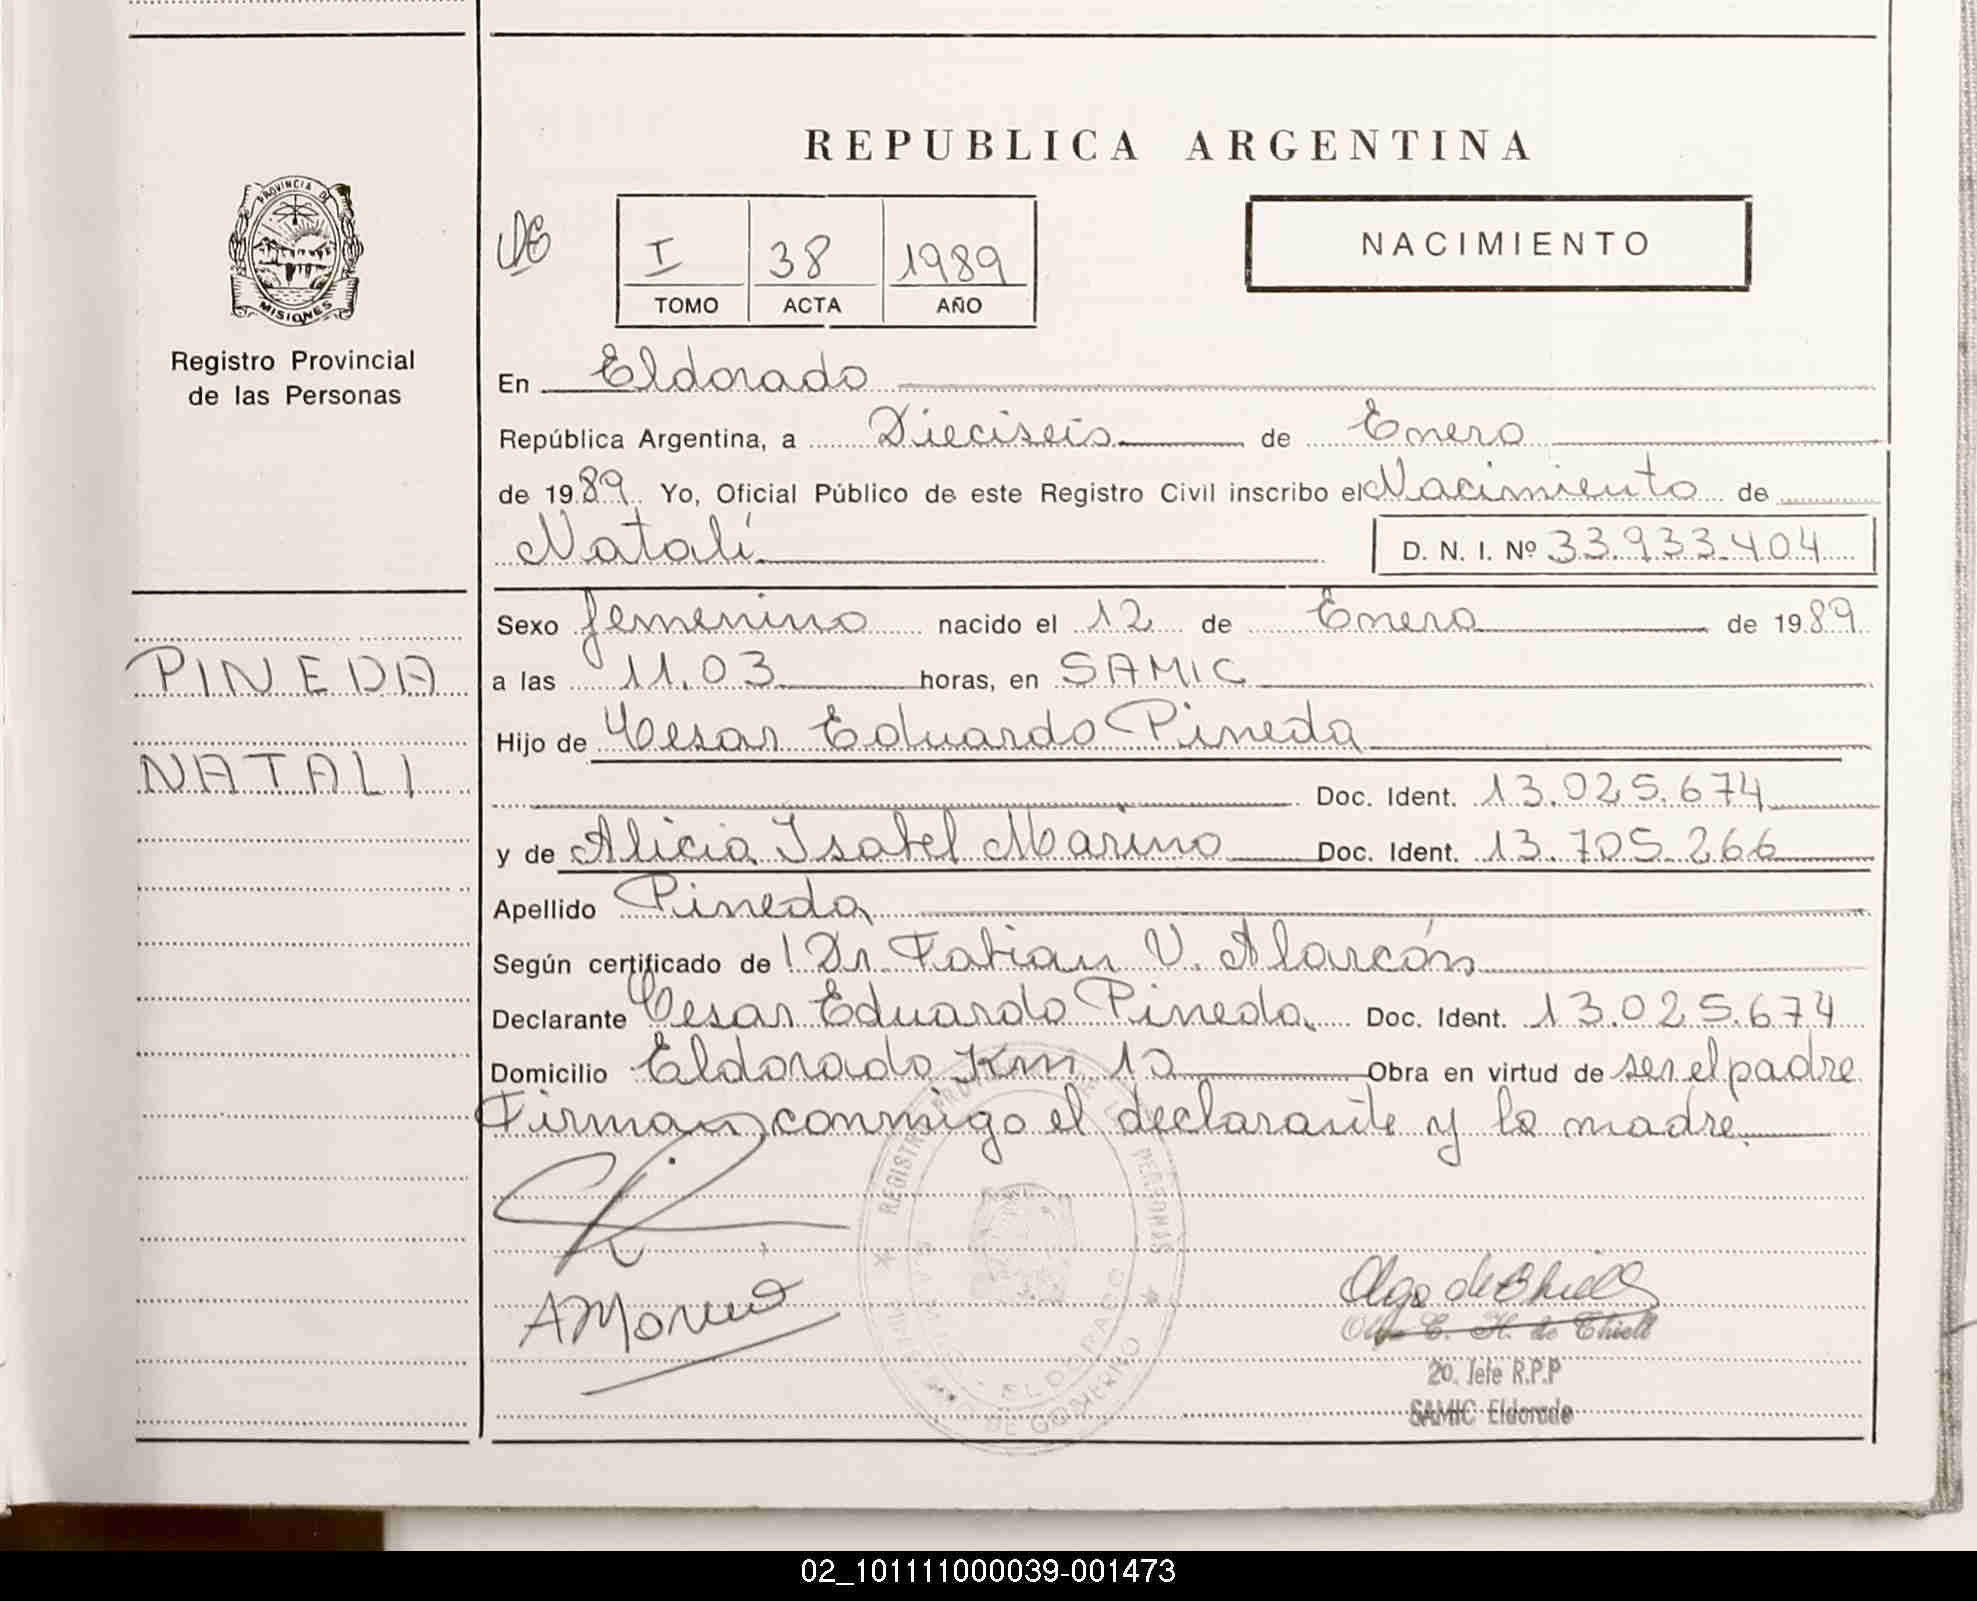 REPUBLICA ARGENTINA
PROVINCIA DE
MISIONES
Registro Provincial
de las Personas
I 38 1989
TOMO ACTA AÑO
NACIMIENTO
En Eldorado
República Argentina, a Dieciseis de Enero
de 1989 Yo, Oficial Público de este Registro Civil inscribo el Nacimiento de
Natalí D. N. I. Nº 33.933.404
Sexo femenino nacido el 12 de Enero de 1989
PINEDA
a las 11.03 horas, en SAMIC
Hijo de Cesar Eduardo Pineda
NATALI
Doc. Ident. 13.025.674
y de Alicia Isabel Marino Doc. Ident. 13.705.266
Apellido Pineda
Según certificado de Dr. Fabian V. Alarcón
Declarante Cesar Eduardo Pineda Doc. Ident. 13.025.674
Domicilio Eldorado Km 10 Obra en virtud de ser el padre
Firman conmigo el declarante y la madre
REGISTRO PERSONAS
ELDORADO
DE GOBIERNO
Olga de Thiell
C. H. de Thiell
20. Jefe R.P.P
SAMIC Eldorado
02_101111000039-001473